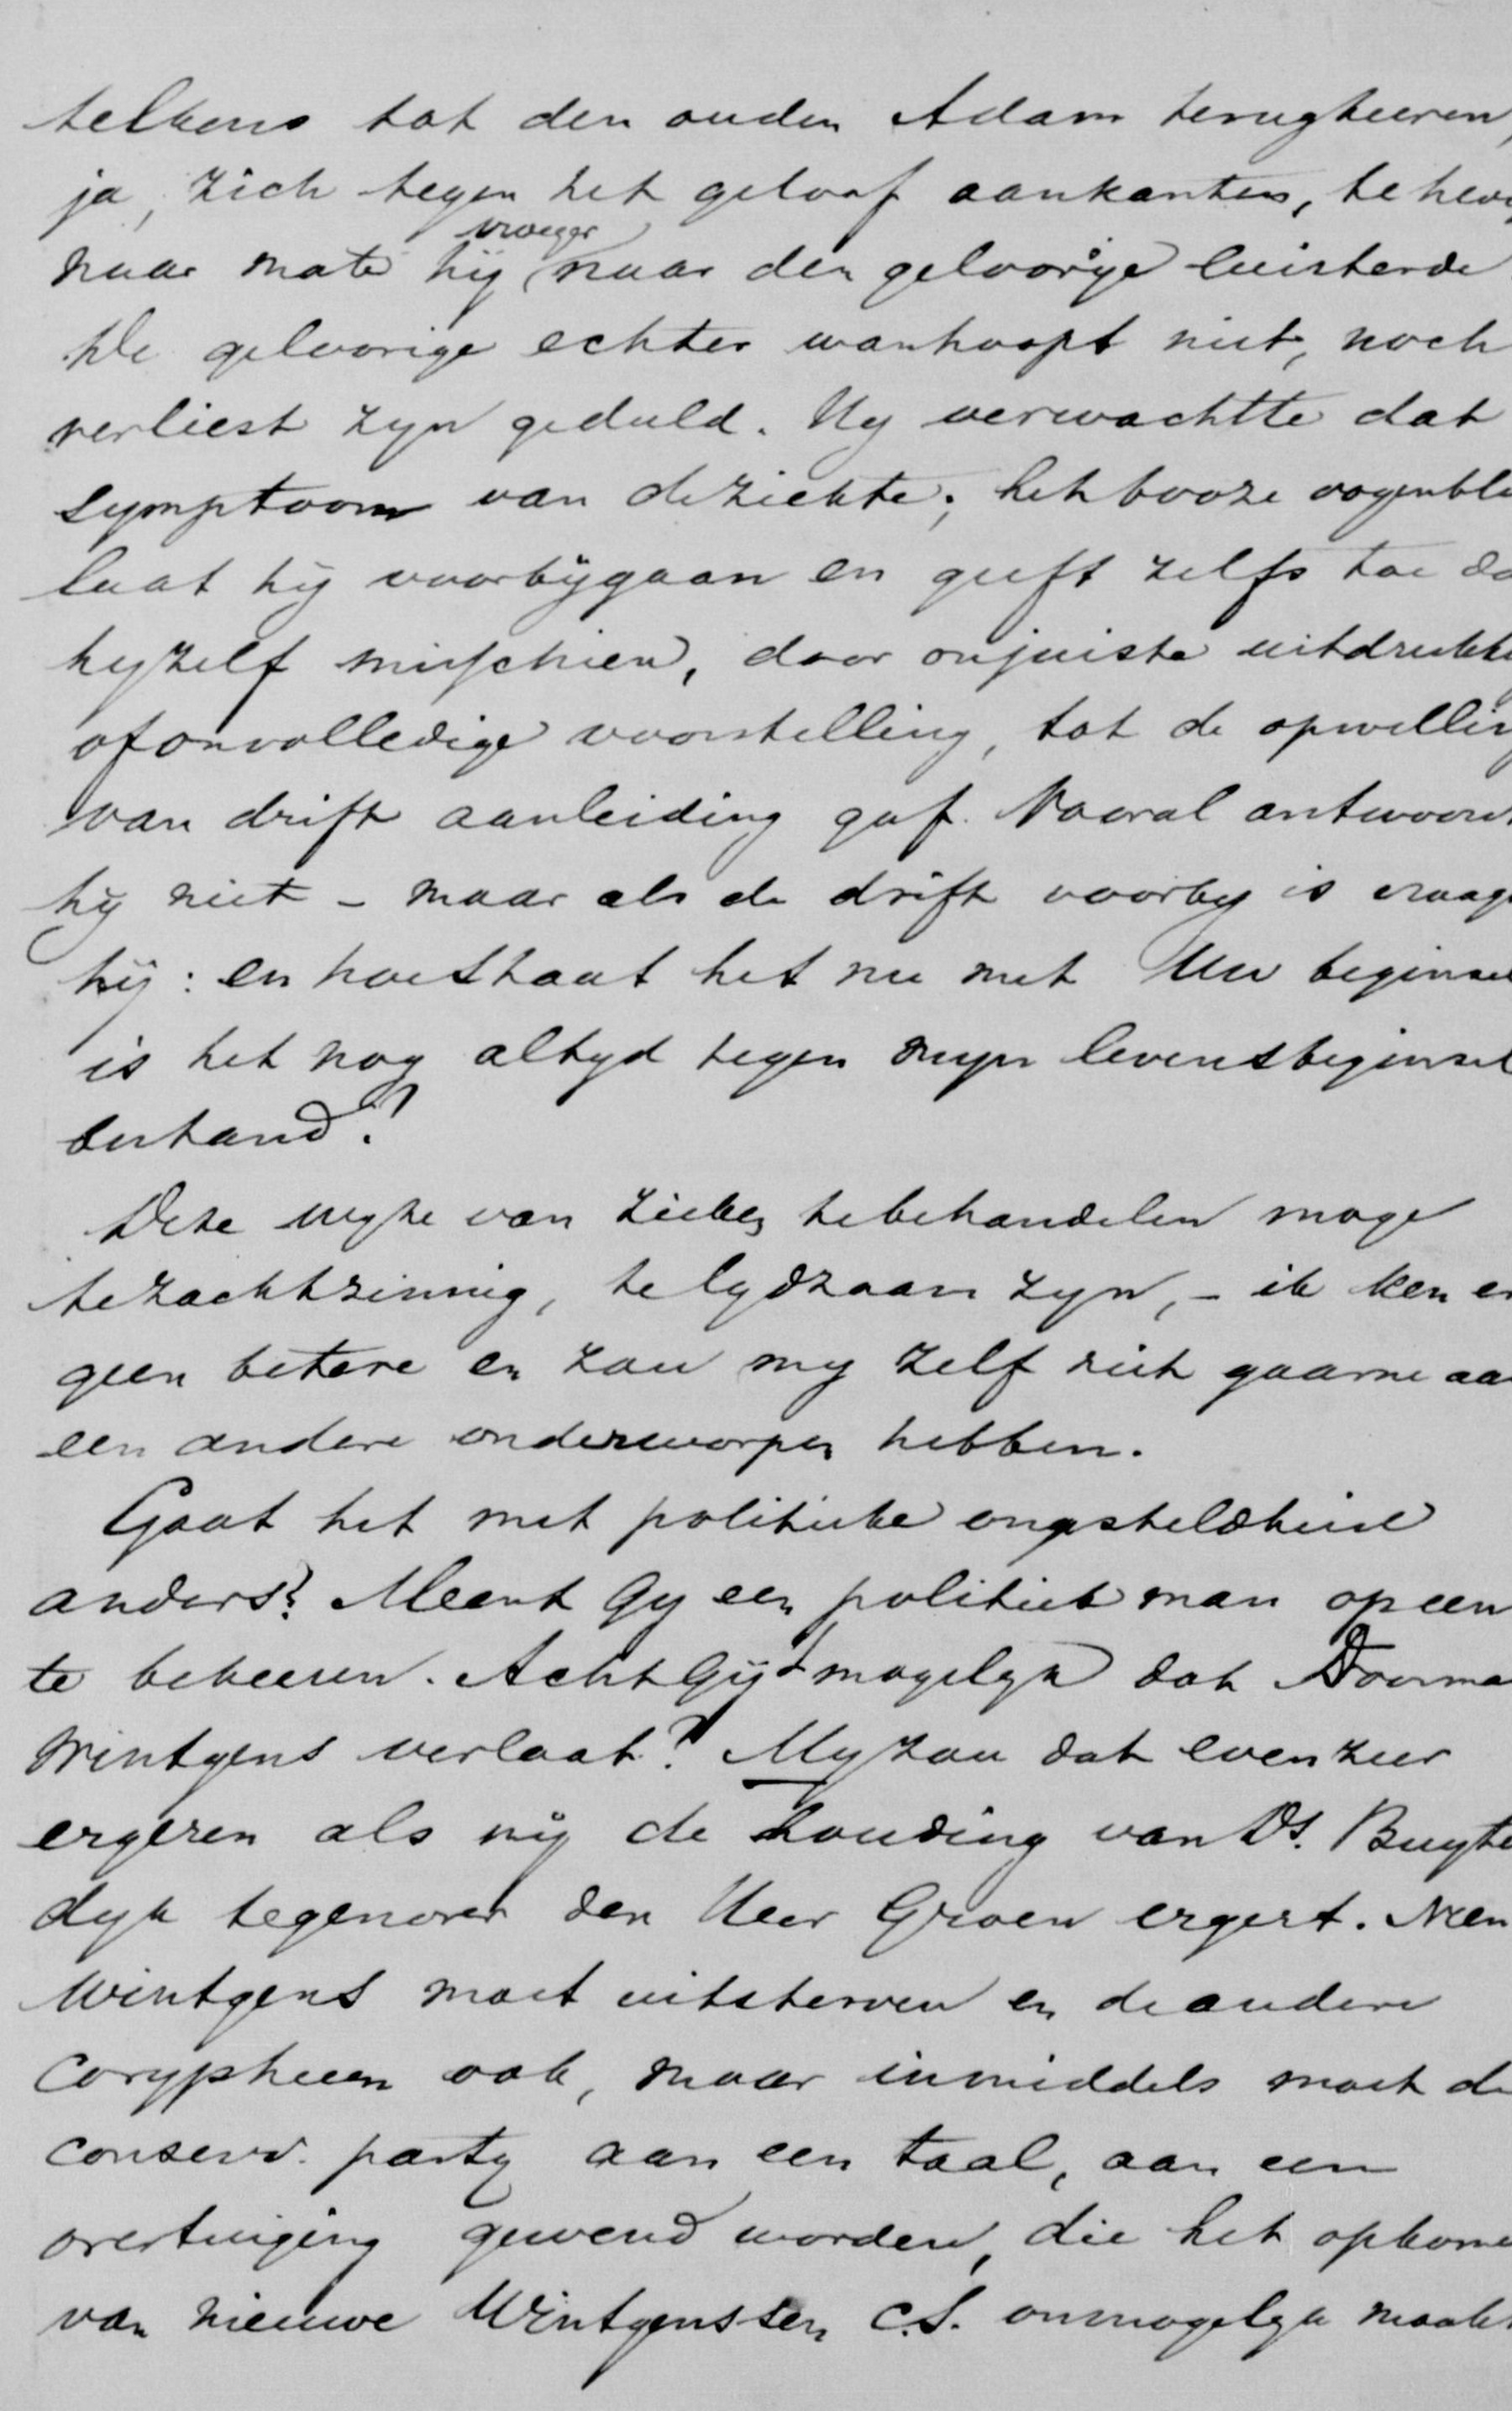 telkens tot den ouden Adam terugkeeren,
ja, zich tegen het geloof aankanten, te hevi
naar mate hij vroeger naar den geloovige luisterde
De geloovige echter wanhoopt niet, noch
verliest zyn geduld. Hy verwachtte dat
symptoom van de ziekte; het booze oogenbli
laat hij voorbijgaan en geeft zelfs toe da
hyzelf misschien, door onjuiste uitdrukki
of onvolledige voorstelling, tot de opwellin
van drift aanleiding gaf. Vooral antwoord
hij niet - maar als de drift voorby is vraag
hij: en hoe staat het nu met Uw beginsel
is het nog altyd tegen myn levensbeginsel
bestand?
Deze wyze van zieken te behandelen moge
te zachtzinnig, te lydzaam zyn, - ik ken er
geen betere en zou my zelf niet gaarne aa
een andere onderworpen hebben.
Gaat het met politieke ongesteldheid
anders? Meent Gy een politiek man op een
te bekeeren. Acht Gij 't mogelyk dat Doorma
Wintgens verlaat? My zou dat evenzeer
ergeren als mij de houding van Ds. Buyte
dyk tegenover den Heer Groen ergert. Neen
Wintgens moet uitsterven en de andere
Corypheeen ook, maar inmiddels moet de
conserv. party aan een taal, aan een
overtuiging gewend worden, die het opkome
van nieuwe Wintgenssen c.s. onmogelyk maakt